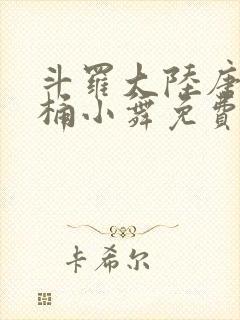 斗羅大陸唐
桶小舞免費
卡希尔